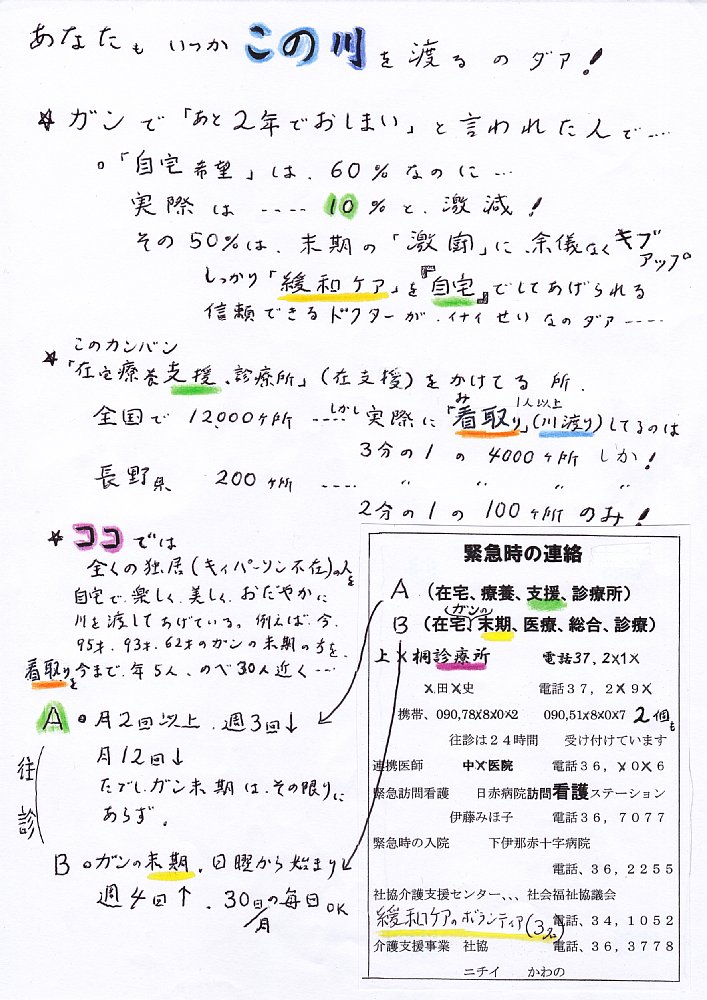 あなたも いっか この川を渡るのダァ!
☆ ガンで「あと2年でおしまい」と言われた人で……
○「自宅希望」は、60%なのに…
実際は ……10%と、激減!
その50%は、末期の「激闘」に、余儀なくギブアップ。
しっかり「緩和ケア」を『自宅』でしてあげられる
信頼できるドクターが、イナイせいなのダァ……
このカンバン
☆「在宅療養支援、診療所」(在支援)をかけてる所.
全国で 12,000ヶ所 ……しかし 実際に「看取り」(川渡り)してるのは
み 1人以上
3分の1の4000ヶ所しか!
長野県 200ヶ所 …… 〃 〃 〃 〃
2分の1の100ヶ所のみ!
☆ ココでは
全くの独居(キィパーソン不在)の人を
自宅で、楽しく、美しく、おだやかに
川を渡してあげている。例えば、今、
95才、93才、62才のガンの末期の方を、
看取りを今まで、年5人、のべ30人近く…
A ○月2回以上、週3回↓
月12回↓
ただしガン末期は、その限りに
あらず。
往診
B ○ガンの末期、日曜から始まり
週4回↑、30日/月の毎日OK
緊急時の連絡
A (在宅、療養、支援、診療所)
B (在宅、ガンの末期、医療、総合、診療)
上×桐診療所 電話37,2×1×
×田×史 電話37,2×9×
携帯、090,78×8×0×2 090,51×8×0×7 2個も
往診は24時間 受け付けています
連携医師 中×医院 電話36,×0×6
緊急訪問看護 日赤病院訪問看護ステーション
伊藤みほ子 電話36,7077
緊急時の入院 下伊那赤十字病院
電話、36,2255
社協介護支援センター、、、社会福祉協議会
緩和ケアのボランティア(3名) 電話、34,1052
介護支援事業 社協 電話、36,3778
ニチイ かわの